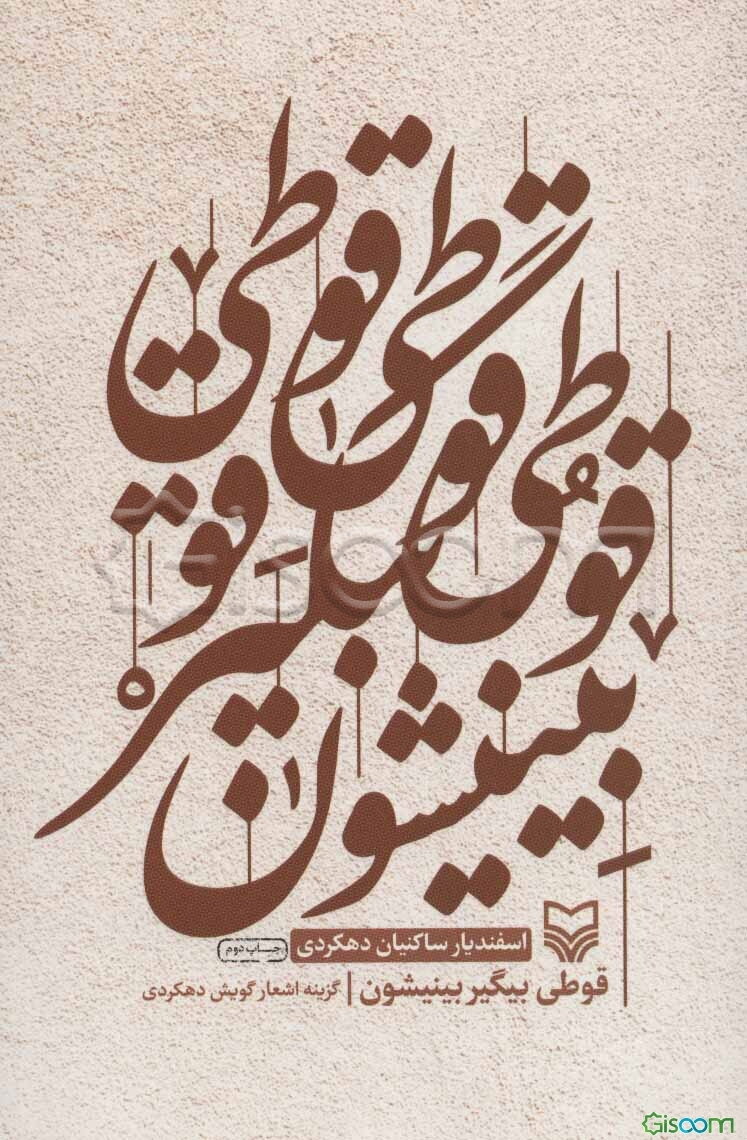 قوطی بیگیر بینیشون
Gisoom
اسفندیار ساکنیان دهکردی
چاپ دوم
قوطی بیگیر بینیشون | گزینه اشعار گویش دهکردی
Gisoom